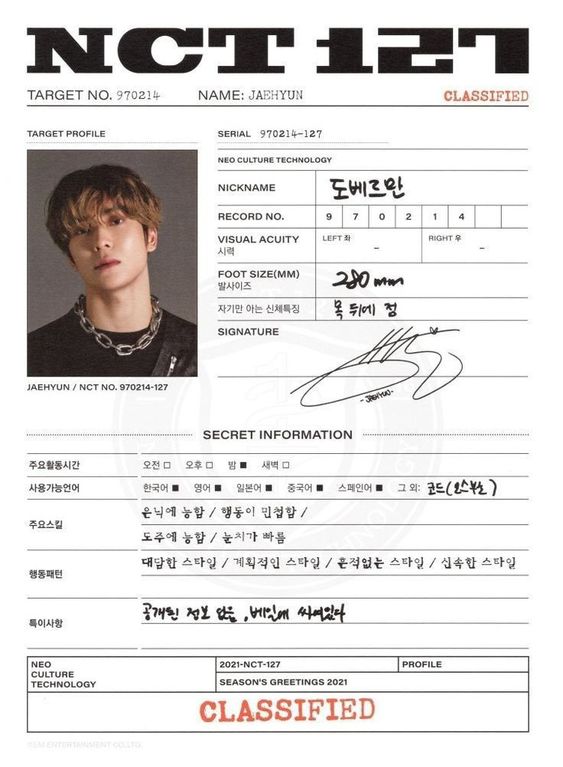 NCT 127
TARGET NO. 970214 NAME: JAEHYUN CLASSIFIED
TARGET PROFILE
SERIAL 970214-127
NEO CULTURE TECHNOLOGY
NICKNAME 도베르만
RECORD NO. 9 7 0 2 1 4
VISUAL ACUITY 시력 LEFT 좌 - RIGHT 우 -
FOOT SIZE(MM) 발사이즈 280 mm
자기만 아는 신체특징 목 뒤에 점
SIGNATURE
-JAEHYUN-
JAEHYUN / NCT NO. 970214-127
SECRET INFORMATION
주요활동시간 오전 □ 오후 □ 밤 ■ 새벽 □
사용가능언어 한국어 ■ 영어 ■ 일본어 ■ 중국어 ■ 스페인어 ■ 그 외: 코드(모스부호)
주요스킬
은닉에 능함 / 행동이 민첩함 /
도주에 능함 / 눈치가 빠름
행동패턴
대담한 스타일 / 계획적인 스타일 / 흔적없는 스타일 / 신속한 스타일
특이사항
공개된 정보 없음, 베일에 싸여있다
NEO
CULTURE
TECHNOLOGY
2021-NCT-127 PROFILE
SEASON'S GREETINGS 2021
CLASSIFIED
©SM ENTERTAINMENT CO.,LTD.